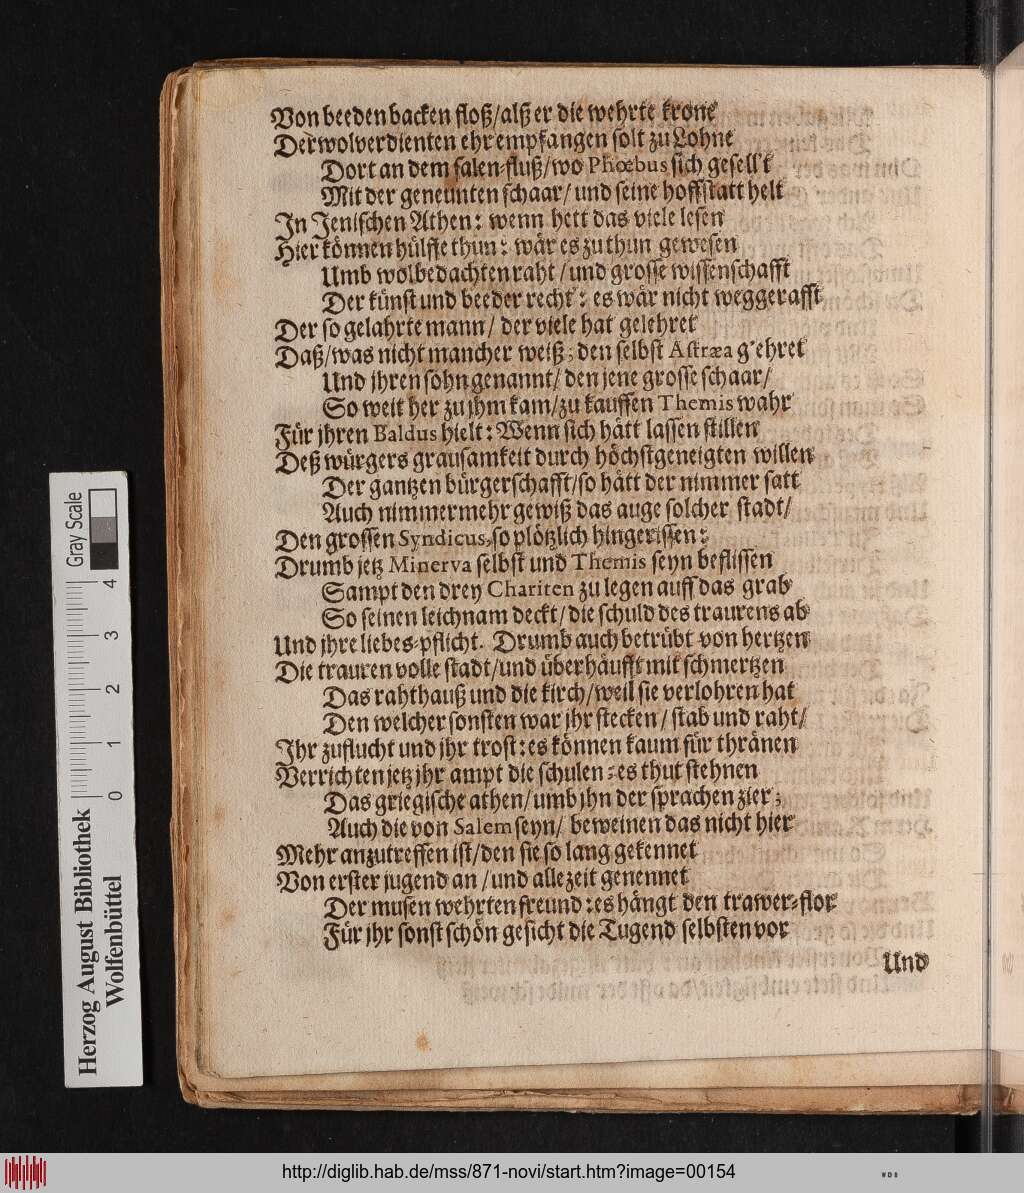 Von beeden backen floß/alß er die wehrte krone
Der wolverdienten ehr empfangen solt zu Lohne
Dort an dem salen-fluß/wo Phœbus sich gesell't
Mit der geneunten schaar/ und seine hoffstatt helt
In Jenischen Athen: wenn hett das viele lesen
Hier können hülffe thun: wär es zu thun gewesen
Umb wolbedachten raht /und grosse wissenschafft
Der künst und beeder recht: es wär nicht weggerafft
Der so gelahrte mann/ der viele hat gelehret
Daß/was nicht mancher weiß; den selbst Astræa g'ehret
Und ihren sohn genannt/ den jene grosse schaar/
So weit her zu jhm kam/zu kauffen Themis wahr
Für jhren Baldus hielt: Wenn sich hätt lassen stillen
Deß würgers grausamkeit durch höchstgeneigten willen
Der gantzen bürgerschafft/so hätt der nimmer satt
Auch nimmermehr gewiß das auge solcher stadt/
Den grossen Syndicus, so plötzlich hingerissen:
Drumb jetz Minerva selbst und Themis seyn beflissen
Sampt den drey Chariten zu legen auff das grab
So seinen leichnam deckt/ die schuld des traurens ab
Und jhre liebes-pflicht. Drumb auch betrübt von hertzen
Die trauren volle stadt/und überhäufft mit schmertzen
Das rahthauß und die kirch/weil sie verlohren hat
Den welcher sonsten war jhr stecken / stab und raht/
Ihr zuflucht und jhr trost: es können kaum für thränen
Verrichten jetz jhr ampt die schulen: es thut stehnen
Das griegische athen/umb jhn der sprachen zier;
Auch die von Salem seyn/ beweinen das nicht hier
Mehr anzutreffen ist/den sie so lang gekennet
Von erster jugend an /und alle zeit genennet
Der musen wehrten freund: es hängt den trawer-flor
Für jhr sonst schön gesicht die Tugend selbsten vor
Und
Gray Scale
0 1 2 3 4
Herzog August Bibliothek
Wolfenbüttel
http://diglib.hab.de/mss/871-novi/start.htm?image=00154